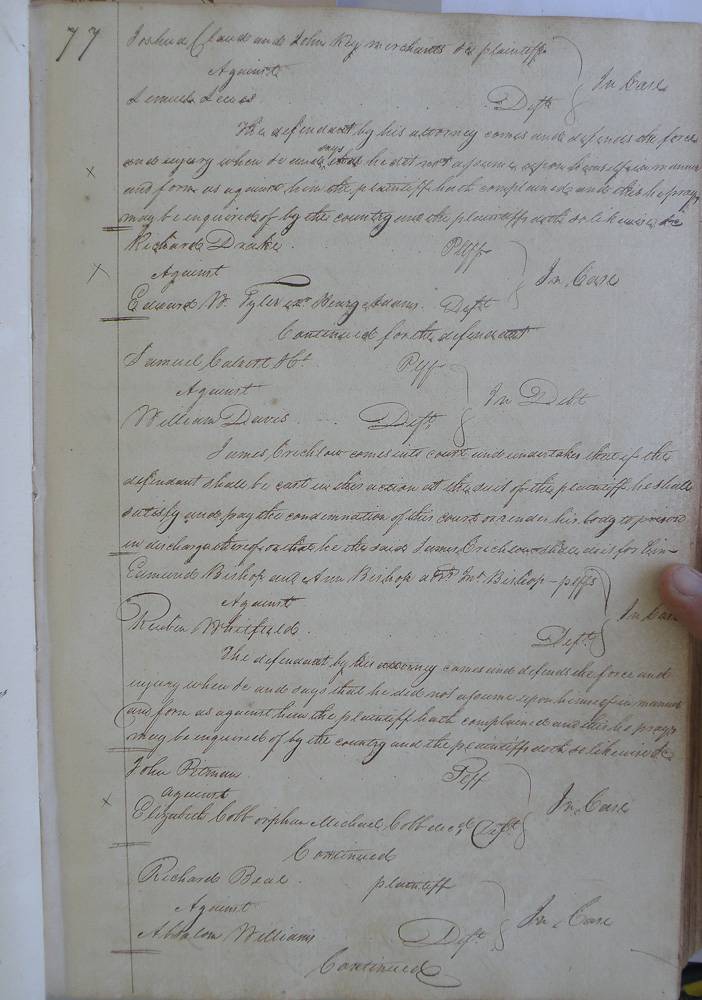 77
Joshua Claud and John Key merchants &c plaintiffs
Against
In Case
Lemuel Lewis Deft.
The defendant by his attorney comes and defends the force
and injury when &c and says that he did not assume upon himself in manner
x
and form as against him the plaintiff hath complained and this he prays
may be enquired of by the country and the plaintiffs doth so likewise &c
Richard Drake Plff
x Against In Case
Edward W. Tyler exr Henry Adams Deft
Continued for the defendant
Samuel Calvert Plff
Against In Debt
William Davis Deft.
James Crichlow comes into court and undertakes that if the
defendant shall be cast in this action at the suit of the plaintiff he shall
satisfy and pay the condemnation of this court or render his body to prison
in discharge thereof or that he the said James Crichlow shall do it for him
Edmund Bishop and Ann Bishop Bishop - plffs
Against In Case
Reuben Whitfield Deft.
The defendant by his attorney comes and defends the force and
injury when &c and says that he did not assume upon himself in manner
and form as against him the plaintiff hath complained and this he prays
may be enquired of by the country and the plaintiffs doth so likewise &c
John Pitman Plff
x against In Case
Elizabeth Cobb orphan Michael Cobb decd Deft
Continued
Richard Beal plaintiff
Against In Case
Absalom Williams Deft
Continued